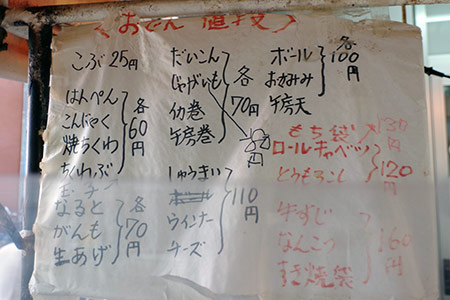 おでん
こぶ 25円
はんぺん
こんにゃく
焼ちくわ
ちくわぶ
各60円
なると
がんも
生あげ
各70円
だいこん
じゃがいも
イカ巻
牛房巻
各70円
しゅうまい
ボール
ウインナー
チーズ
110円
ボール
おかみみ
牛房天
各100円
もち袋 130
ロールキャベツ
とうもろこし
120円
牛すじ
なんこつ
すき焼袋
160円